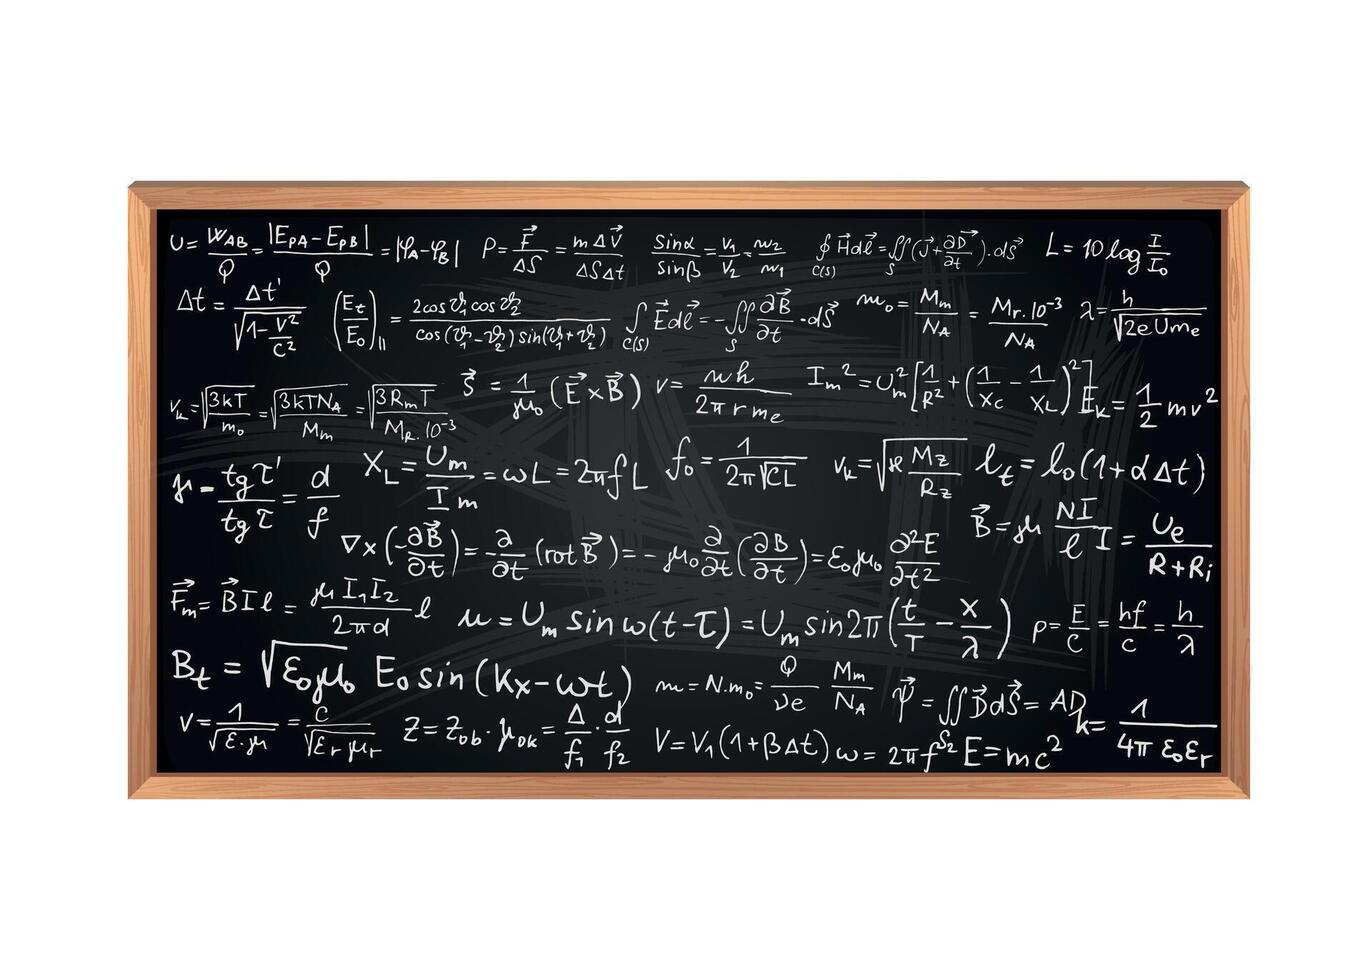 U = W_AB/Q = |E_PA − E_PB|/Q = |φ_A − φ_B| P = F⃗/ΔS = mΔv⃗/ΔSΔt sinα/sinβ = v₁/v₂ = n₂/n₁ ∮_C(S) H⃗dl⃗ = ∬_S (J⃗ + ∂D⃗/∂t)·dS⃗ L = 10 log I/I₀
Δt = Δt'/√(1 − v²/c²) (E_t/E_0)_II = 2cosϑ₁cosϑ₂/cos(ϑ₁−ϑ₂)sin(ϑ₁+ϑ₂) ∫_C(S) E⃗dl⃗ = −∬_S ∂B⃗/∂t·dS⃗ m₀ = M_m/N_A = M_r.10⁻³/N_A λ = h/√(2eUm_e)
v_k = √(3kT/m₀) = √(3kTN_A/M_m) = √(3R_mT/M_R.10⁻³) S⃗ = 1/μ₀ (E⃗×B⃗) v = nh/2πrm_e I_m² = U_m²[1/R² + (1/X_C − 1/X_L)²] E_k = 1/2 mv²
γ = tgτ'/tgτ = d/f X_L = U_m/I_m = ωL = 2πfL f₀ = 1/2π√CL v_k = √(ϰ M_Z/R_Z) l_t = l₀(1+αΔt)
∇×(−∂B⃗/∂t) = −∂/∂t (rot B⃗) = −μ₀ ∂/∂t (∂B/∂t) = ε₀μ₀ ∂²E/∂t² B⃗ = μ NI/l I = U_e/R+R_i
F⃗_m = B⃗Il = μI₁I₂/2πd l u = U_m sinω(t−τ) = U_m sin2π(t/T − x/λ) p = E/c = hf/c = h/λ
B_t = √ε₀μ₀ E₀sin(kx−ωt) m = N.m₀ = Q/νe M_m/N_A Ψ⃗ = ∬B⃗dS⃗ = AD k = 1/4πε₀ε_r
v = 1/√ε.μ = c/√ε_rμ_r Z = Z_ob.γ_ok = Δ/f₁·d/f₂ V = V₁(1+βΔt) ω = 2πf S₂ E = mc²